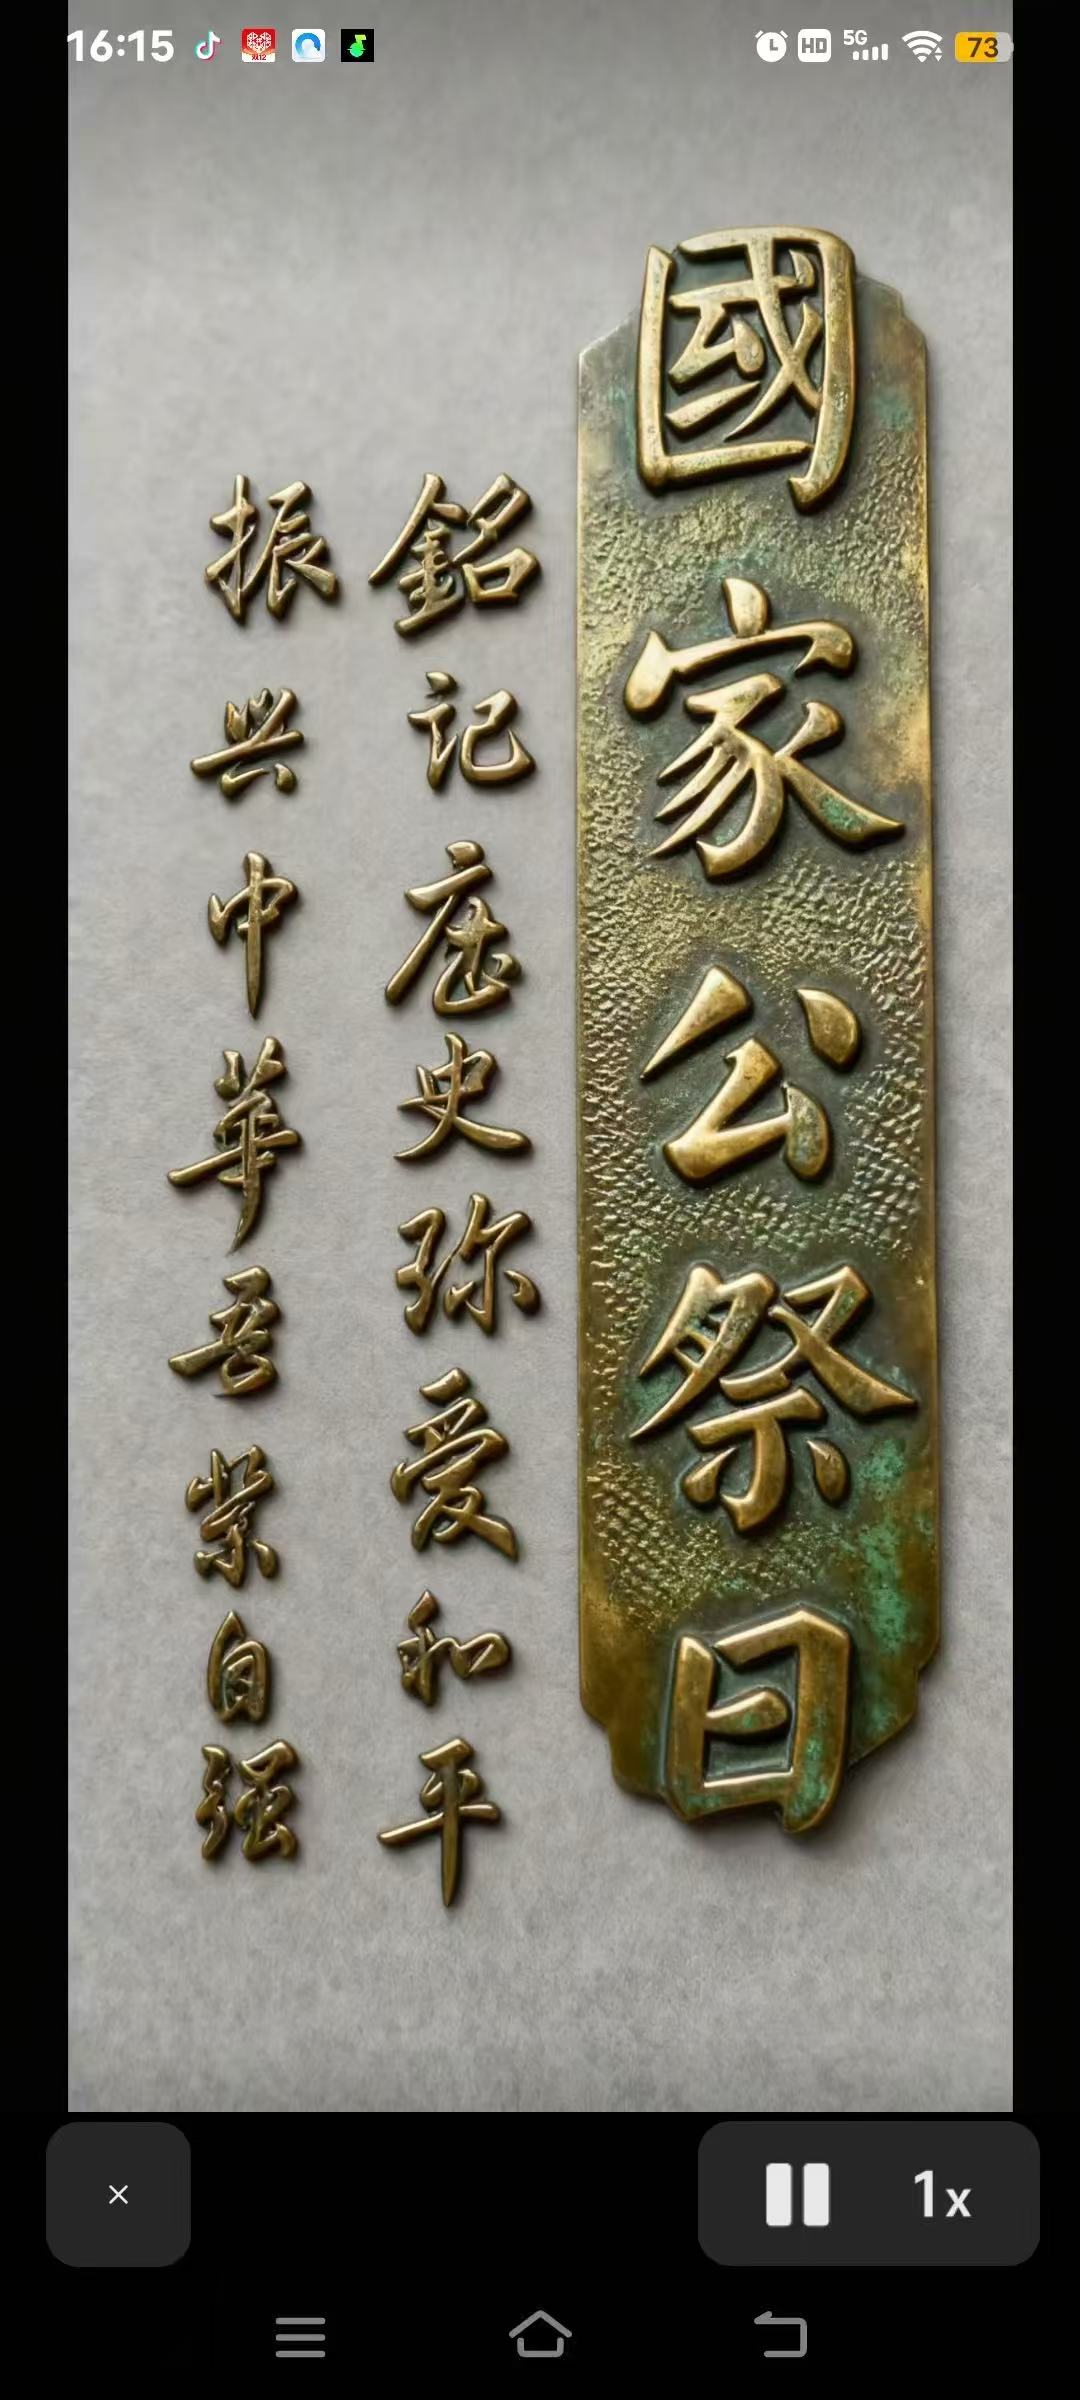 16:15
HD
5G
73
國家公祭日
銘记歷史珎爱和平
振兴中華吾輩自强
1x